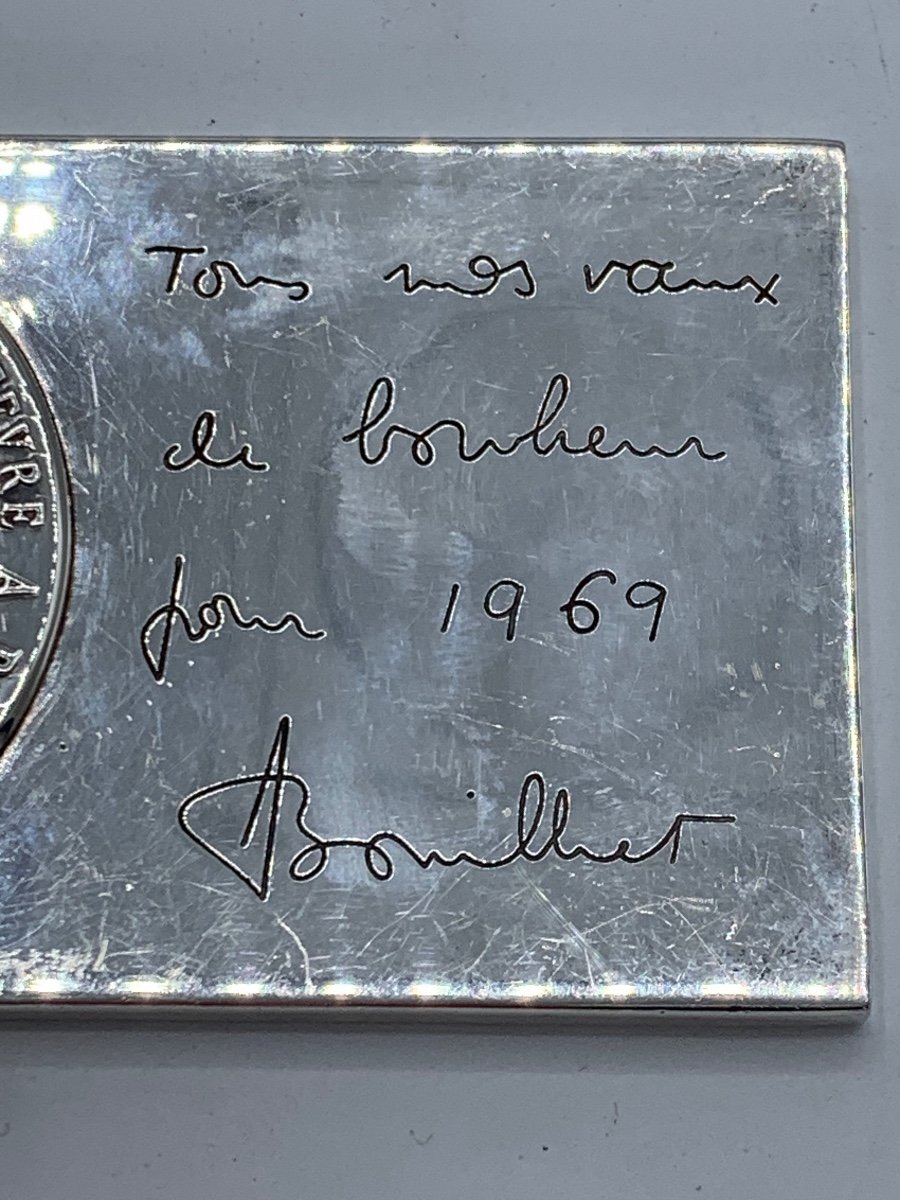 Tous nos vœux
de bonheur
pour 1969
ABouilhet
EVRE A P